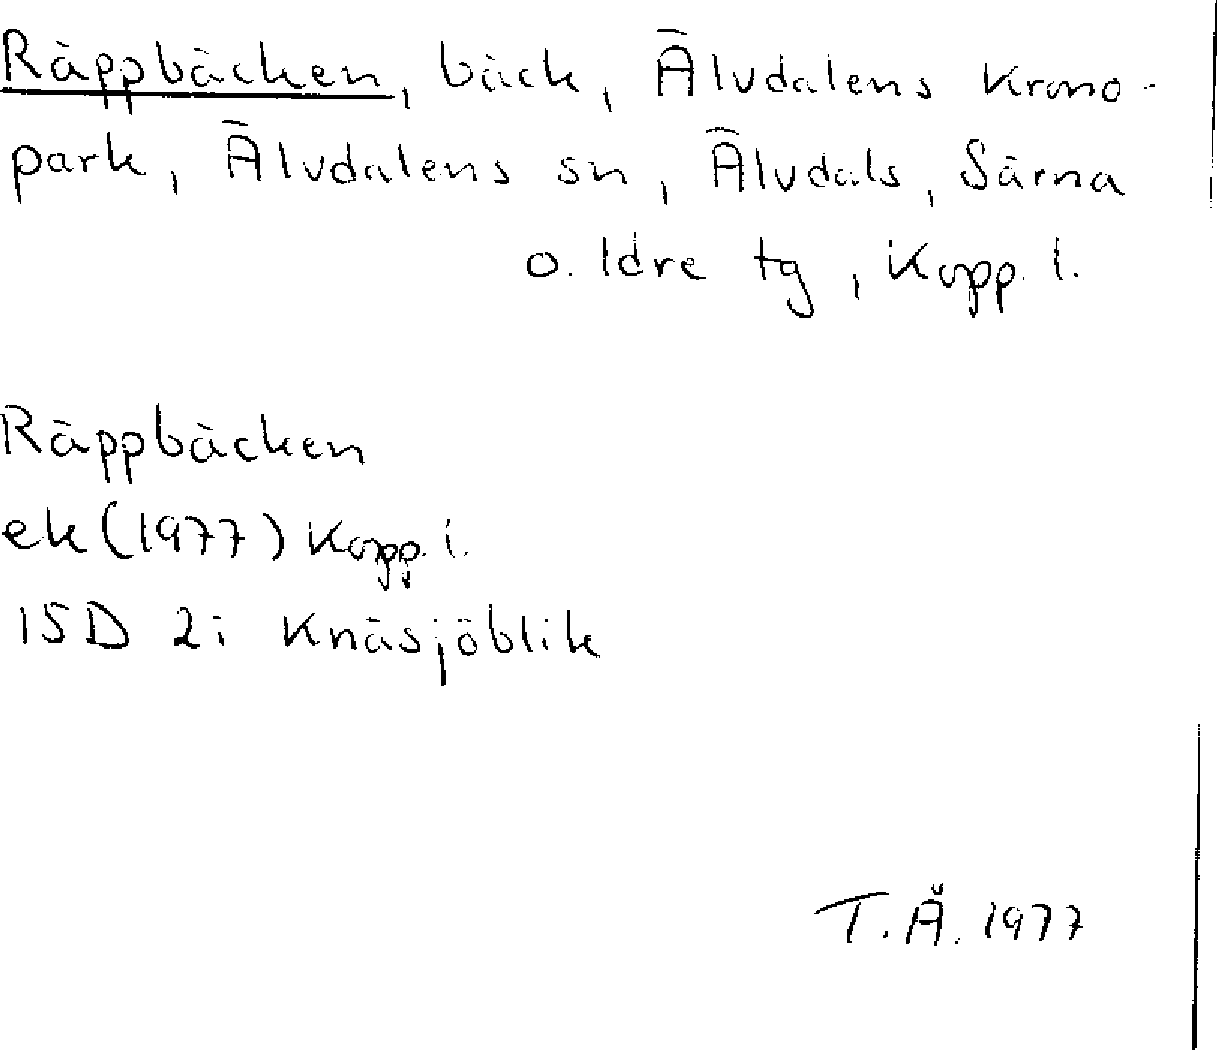 Räppbäcken, bäck, Älvdalens krono-
park, Älvdalens sn, Älvdals, Särna
o. Idre tg, Kopp. l.
Räppbäcken
ek (1977) Kopp. l.
15D 2i Knäsjöblik
T. Å. 1977